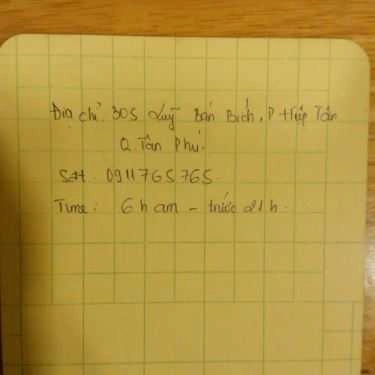 Địa chỉ: 305 Luỹ Bán Bích, P Hiệp Tân
Q. Tân Phú.
Sđt: 0911765765.
Time: 6h am - trước 21h.